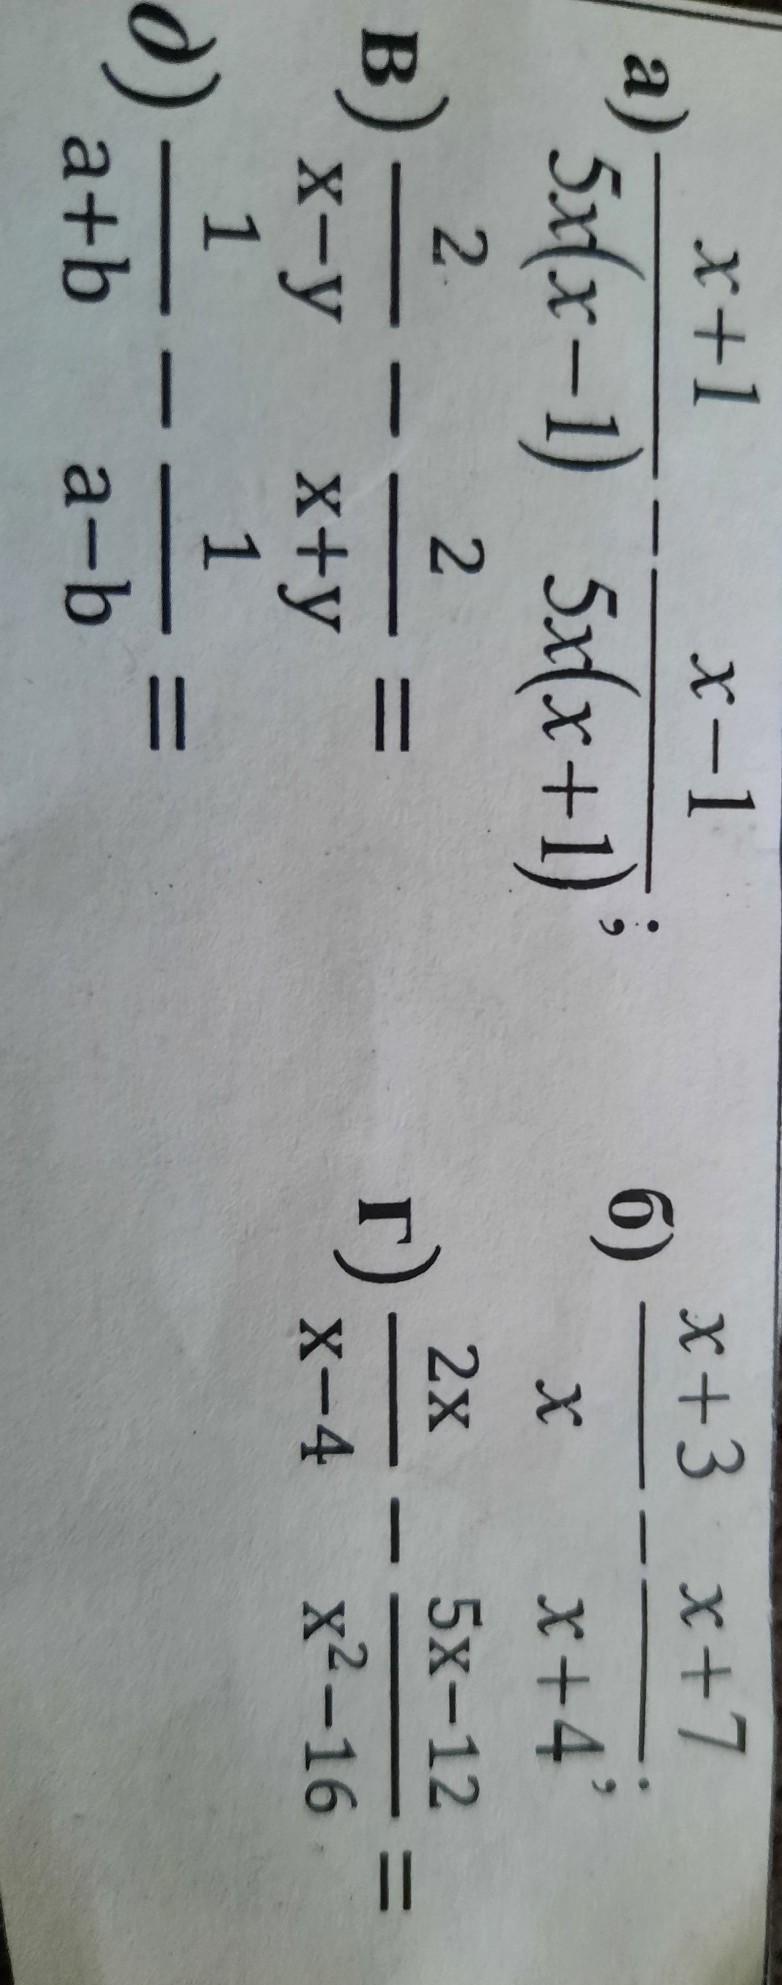 а) (x+1)/(5x(x−1)) − (x−1)/(5x(x+1)); б) (x+3)/x − (x+7)/(x+4);
в) 2/(x−y) − 2/(x+y) = г) 2x/(x−4) − (5x−12)/(x²−16) =
д) 1/(a+b) − 1/(a−b) =